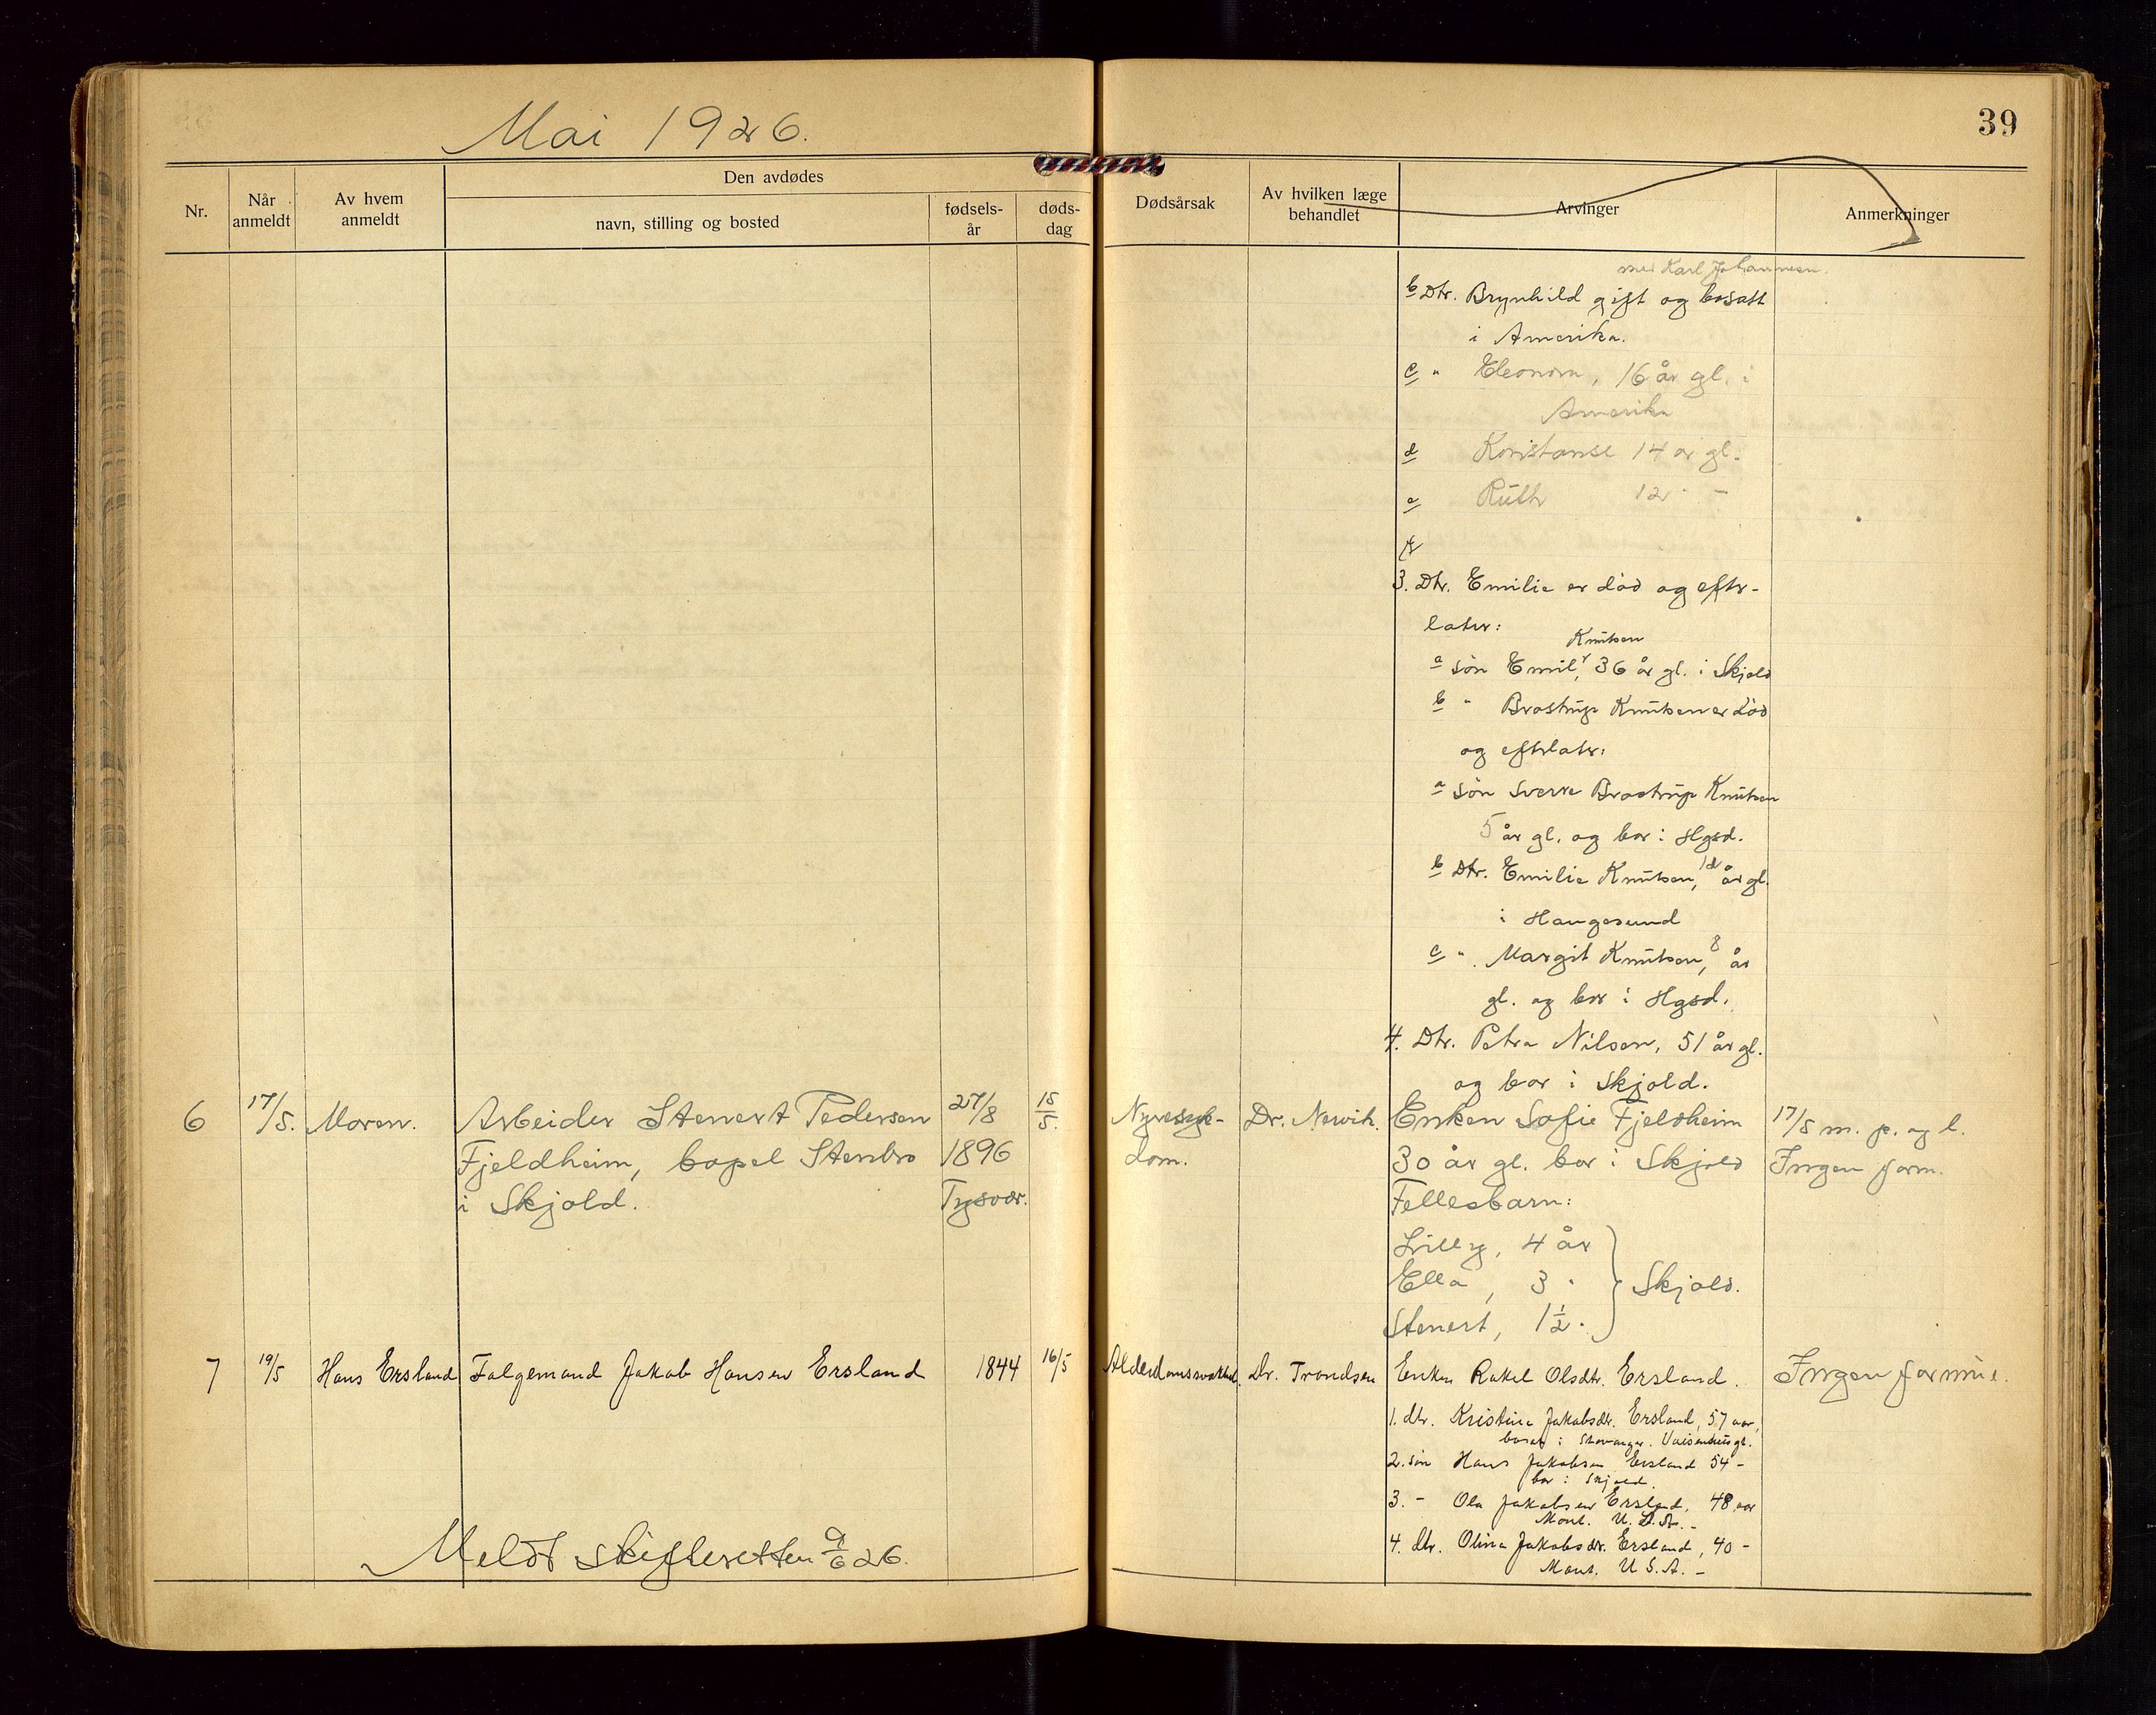 Mai 1926.
39
Nr.
Når anmeldt
Av hvem anmeldt
Den avdødes
navn, stilling og bosted
fødsels-år
døds-dag
Dødsårsak
Av hvilken læge behandlet
Arvinger
Anmerkninger
med Karl Johannesen.
b Dtr. Brynhild gift og bosatt
i Amerika.
c " Eleonora, 16 år gl. i
Amerika
d Konstanse 14 år gl.
e Ruth 12 " -
f
3. Dtr. Emilie er død og efter-
later:
Knutsen
a søn Emil, 36 år gl. i Skjold
b " Brostrup Knutsen er død
og efterlater:
a søn Sverre Brostrup Knutsen
5 år gl. og bor i Hgsd.
b Dtr. Emilie Knutsen, 12 år gl.
i Haugesund
c " Margit Knutsen, 8 år
gl. og bor i Hgsd.
4. Dtr. Petra Nilsen, 51 år gl.
og bor i Skjold.
6 17/5. Moren. Arbeider Stenert Pedersen 27/8 15/5. Nyresyk- Dr. Nervik. Enken Sofie Fjeldheim 17/5 m. p. og l.
Fjeldheim, bopel Stenbro 1896 dom. 30 år gl. bor i Skjold Ingen form.
i Skjold. Tysvær. Fellesbarn:
Lilly, 4 år
Ella, 3 " Skjold.
Stenert, 1½ "
7 19/5 Hans Ersland Følgemand Jakob Hansen Ersland 1844 16/5 Alderdomssvakhed. Dr. Trondsen Enken Rakel Olsdtr. Ersland. Ingen formue.
1. dtr. Kristine Jakobsdtr. Ersland, 57 aar,
bosat i Stavanger. Vaisenhusgt.
2. søn Hans Jakobsen Ersland 54 -
bor i Skjold.
3. - Ola Jakobsen Ersland, 48 aar
Mont. U.S.A. -
4. dtr. Olina Jakobsdtr. Ersland, 40 -
Mont. U.S.A. -
Meldt skifteretten 9/6 26.